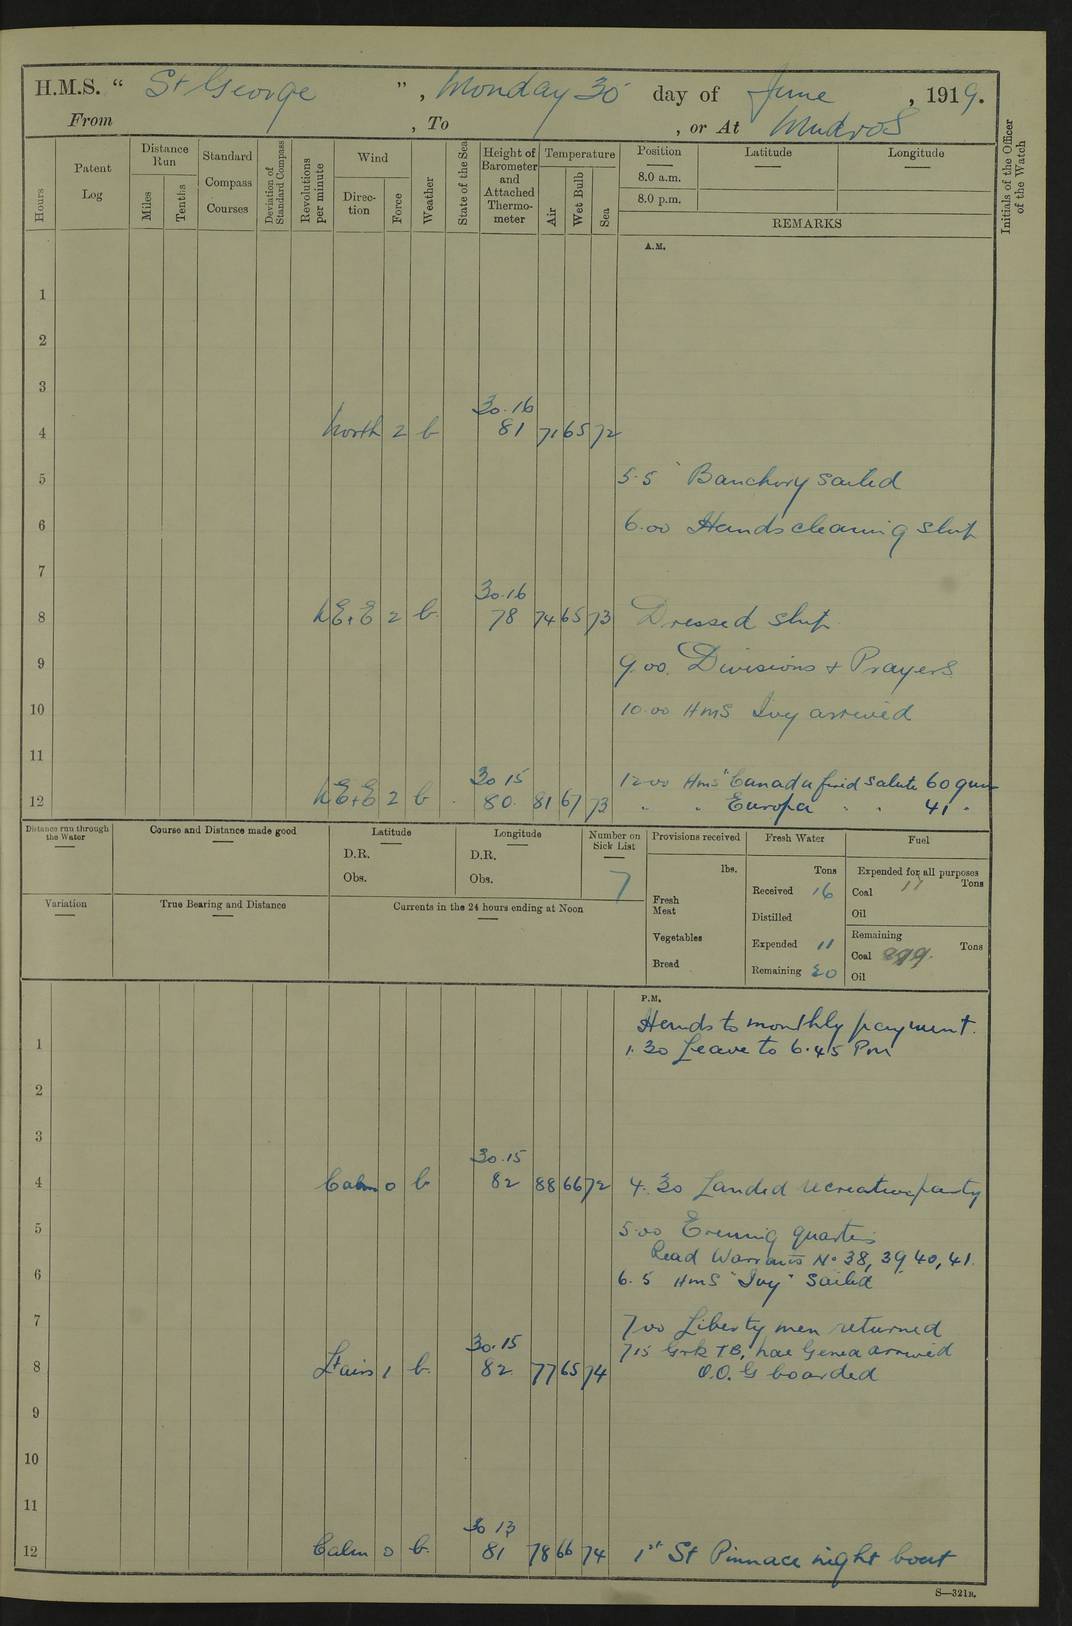 H.M.S. “ St George ” , Monday 30 day of June , 1919.
From , To , or At Mudros
Hours
Patent Log
Distance Run
Miles
Tenths
Standard Compass Courses
Deviation of Standard Compass
Revolutions per minute
Wind
Direction
Force
Weather
State of the Sea
Height of Barometer and Attached Thermometer
Temperature
Air
Wet Bulb
Sea
Position
8.0 a.m.
8.0 p.m.
Latitude
Longitude
REMARKS
Initials of the Officer of the Watch
A.M.
1
2
3
30.16
4 North 2 b 81 71 65 72
5 5.5 Banchory sailed
6 6.00 Hands cleaning ship
7
30.16
8 NE+E 2 b. 78 74 65 73 Dressed ship
9 9.00. Divisions + Prayers
10 10.00 HMS Ivy arrived
11
30 15 12.00 Hms "Canada fired salute 60 guns
12 NE+E 2 b 80. 81 67 73 " " Europa " " 41 "
Distance run through the Water
Course and Distance made good
Latitude
D.R.
Obs.
Longitude
D.R.
Obs.
Number on Sick List
7
Provisions received
lbs.
Fresh Meat
Vegetables
Bread
Fresh Water
Tons
Received 16
Distilled
Expended 11
Remaining 20
Fuel
Expended for all purposes
Coal 17 Tons
Oil
Remaining
Coal Tons
Oil
Variation
True Bearing and Distance
Currents in the 24 hours ending at Noon
P.M.
Hands to monthly payment.
1 1.30 Leave to 6.45 Pm
2
3
30.15
4 Calm 0 b 82 88 66 72 4.30 Landed recreation party
5 5.00 Evening quarters
Read Warrants No 38, 39, 40, 41.
6 6.5 HMS "Ivy" Sailed
7 7.00 Liberty men returned
30.15 7.15 Grk TB, arrived
8 Lt airs 1 b. 82. 77 65 74 O.O.G boarded
9
10
11
30 13
12 Calm 0 b. 81 78 66 74 1st St Pinnace night boat
S—321B.